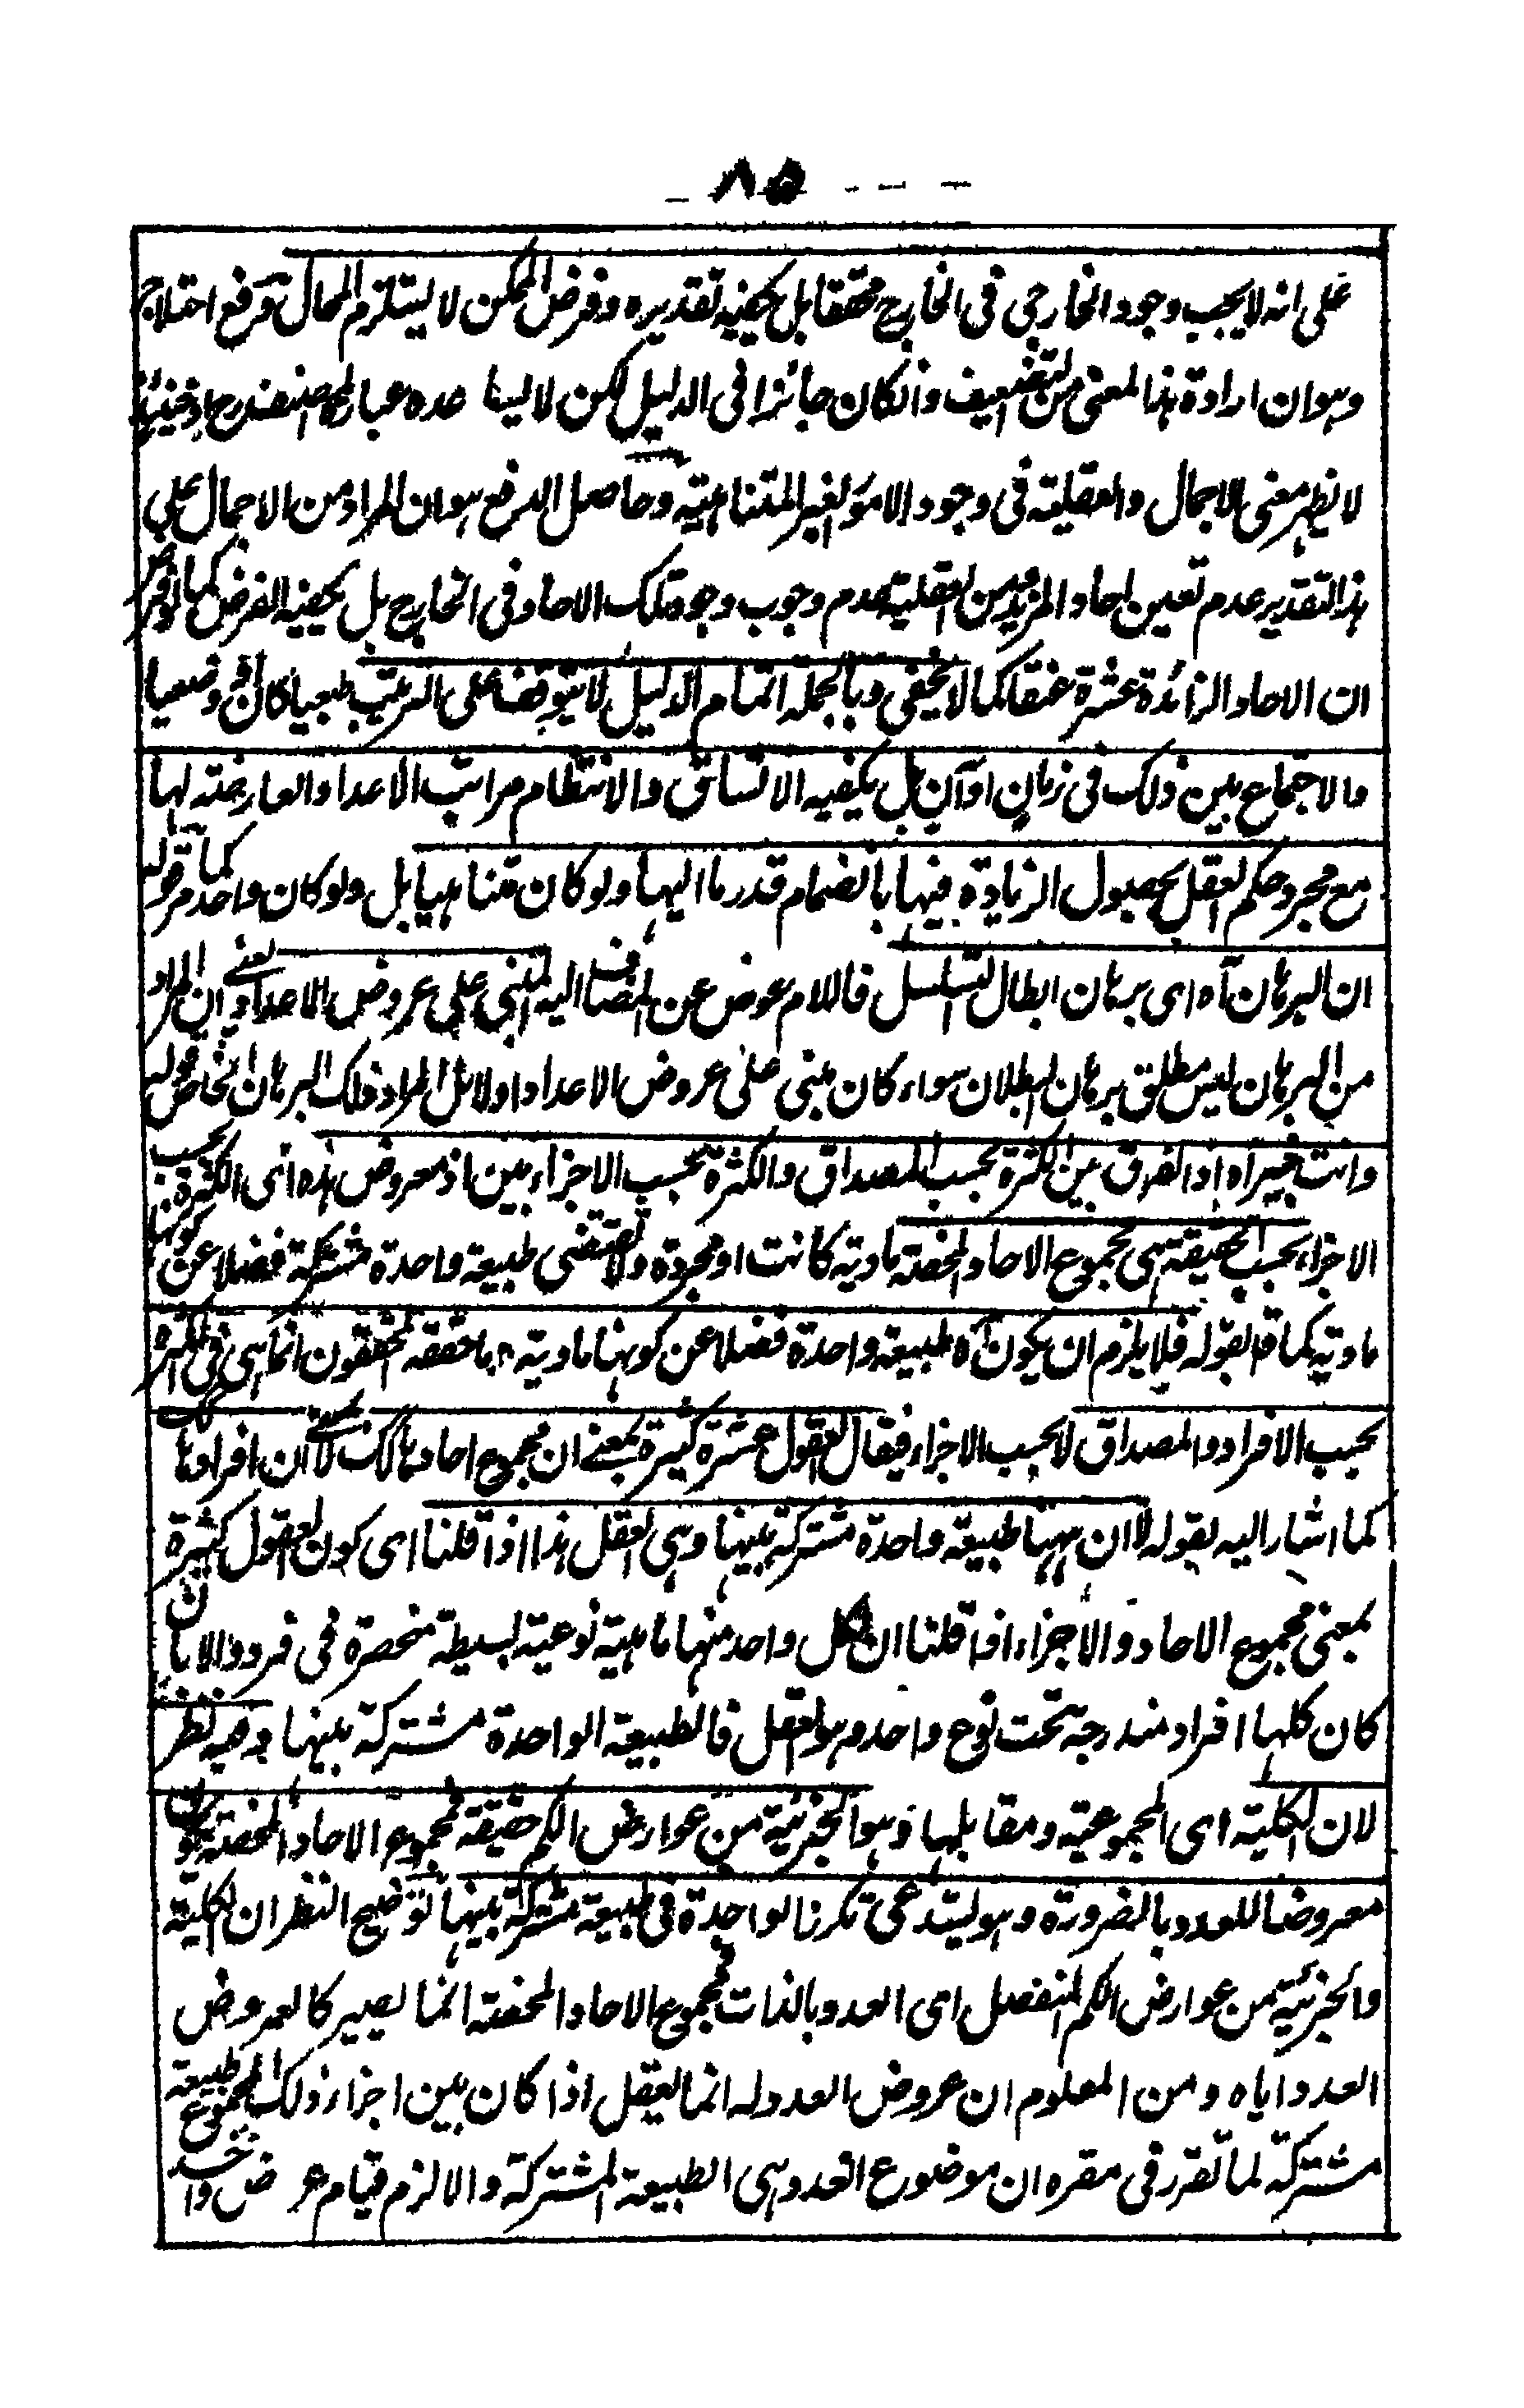 ٨٥
على انه لا يجب وجود الخارجى فى الخارج محققا بل يكفيه تقديره وفرض الممكن لا يستلزم المحال ترفع اختلاج
وهو ان ارادة هذا المعنى من التضعيف وانكان جائزا فى الدليل لكن لا يساعده عبارة المصنف
لا يظهر معنى الاجمال والعقلية فى وجود الامور الغير المتناهية وحاصل الدفع هو ان المراد من الاجمال على
هذا التقدير عدم تعين احاد المزيد ومن العقلية عدم وجوب وجود تلك الاحاد فى الخارج بل يكفيه الفرض كما لو فرض
ان الاحاد الزائدة عشرة حققا كما لا يخفى وبالجملة اتمام الدليل لا يتوقف على الترتيب طبعيا كان او وضعيا
والاجتماع بين ذلك فى زمان او آن بل يكفيه الاتساق والانتظام مراتب الاعداد العارضة لها
مع مجرد حكم العقل بحصول الزيادة فيها بانضمام قدر ما اليها ولو كان متناهيا بل ولو كان واحدا كما مر قوله
ان البرهان آه اى برهان ابطال التسلسل فاللام عوض عن المضاف اليه المبنى على عروض الاعداد يعنى ان المراد
من البرهان ليس مطلق برهان البطلان سواء كان مبنى على عروض الاعداد اولا بل المراد ذلك البرهان الخاص قوله
وانت خبير آه اذ الفرق بين الكثرة بحسب المصداق والكثرة بحسب الاجزاء بين اذ معروض هذه اى الكثرة بحسب
الاجزاء بحسب الحقيقة هى مجموع الاحاد المحضة مادية كانت او مجردة ولا تقتضى طبيعة واحدة مشتركة فضلا عن كونها
مادية كما قال بقوله فلا يلزم ان يكون آه طبيعة واحدة فضلا عن كونها مادية وما حققه المحققون انما هى فى الكثرة
بحسب الافراد والمصداق لا بحسب الاجزاء فيقال العقول عشرة كثيرة بمعنى ان مجموع احادها كذلك لا بمعنى ان افرادها
كما اشار اليه بقوله لا ان ههنا طبيعة واحدة مشتركة بينها وهى العقل هذا اذا قلنا اى كون العقول كثيرة
بمعنى مجموع الاحاد والاجزاء اذا قلنا ان لكل واحد منها ماهية نوعية بسيطة منحصرة فى فرد والا بان
كان كلها افراد مندرجة تحت نوع واحد وهو العقل فالطبيعة الواحدة مشتركة بينها وفيه نظر
لان الكلية اى المجموعية ومقابلها وهو الجزئية من عوارض الكم حقيقة فمجموع الاحاد المحضة يكون
معروضا للعدد بالضرورة وهو يستدعى تكرنا لواحدة فى طبيعة مشتركة بينها توضيح النظر ان الكلية
والجزئية من عوارض الكم المنفصل اى العدد بالذات فمجموع الاحاد المحضة انما يصير كالعروض
العدد اياه ومن المعلوم ان عروض العدد له انما يعقل اذا كان بين اجزاء ذلك المجموع طبيعة
مشتركة لما تقرر فى مقره ان موضوع العدد هى الطبيعة المشتركة والا لزم قيام عرض واحد